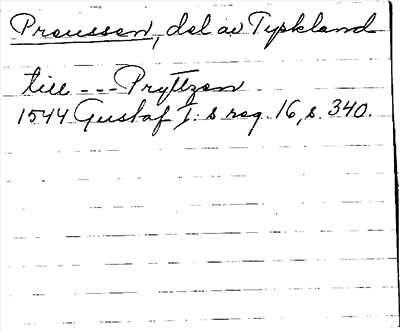 Preussen, del av Tyskland
till --- Prytzen
1544 Gustaf I:s reg. 16, s. 340.